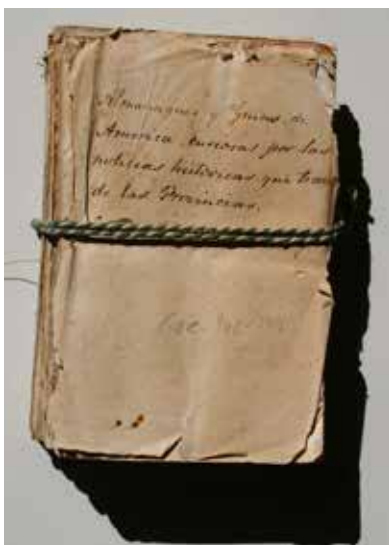 Almanaques y Guias de
America curiosas por las
noticias históricas que traen
de las Provincias.